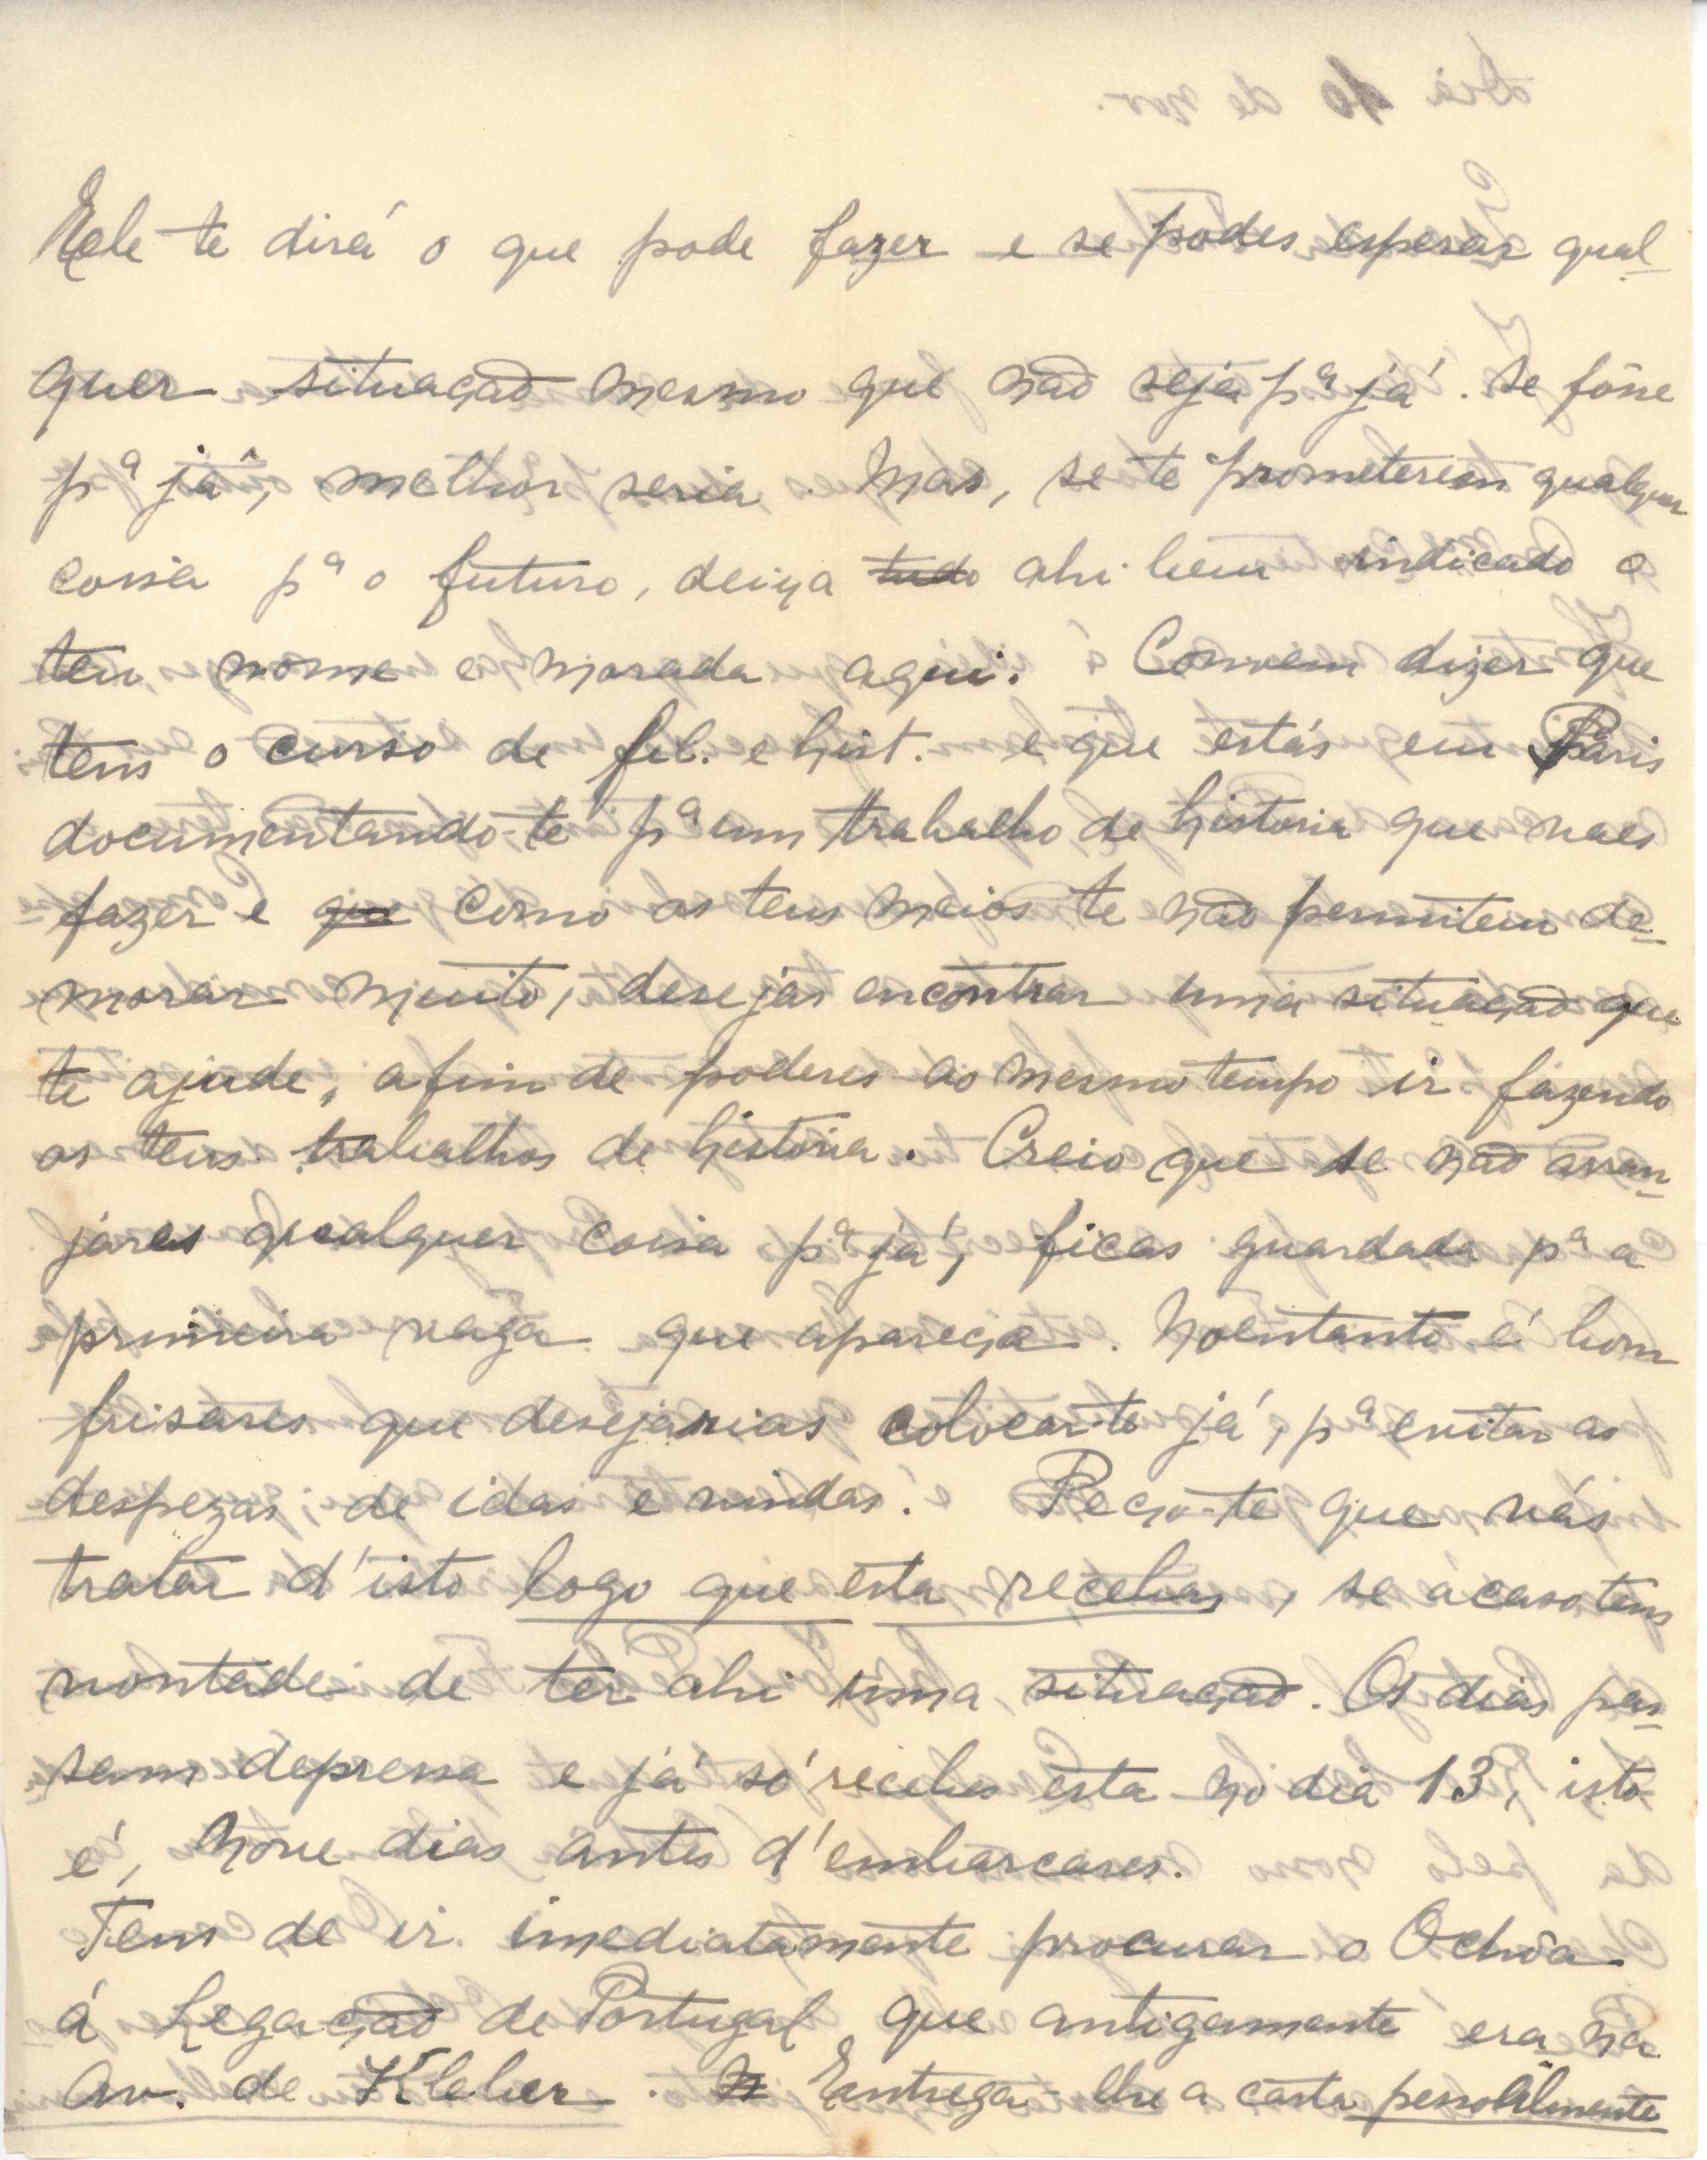 Ele te dirá o que pode fazer e se podes esperar qual-
quer situação mesmo que não seja pª já. Se fôsse
pª já, melhor seria. Mas, se te prometerem qualquer
coisa pª o futuro, deixa tudo ahi bem indicado o
teu nome e morada aqui. Convem dizer que
tens o curso de fil. e hist. e que estás em Paris
documentando-te pª um trabalho de historia que vaes
fazer e que como os teus meios te não permitem de-
morar muito, desejas encontrar uma situação que
te ajude, afim de poderes ao mesmo tempo ir fazendo
os teus trabalhos de historia. Creio que se não arran-
jares qualquer coisa pª já, ficas guardada pª a
primeira vaga que apareça. Noentanto é bom
frisares que desejarias colocar-te já, pª evitar as
despezas de idas e vindas. Peço-te que vás
tratar d'isto logo que esta recebas, se acaso tens
vontade de ter ahi uma situação. Os dias pas-
sam depressa e já só recebes esta no dia 13, isto
é, nove dias antes d'embarcares.
Tens de ir imediatamente procurar o Ochôa
á Legação de Portugal que antigamente era na
Av. de Kleber. Entrega-lhe a carta pessoalmente